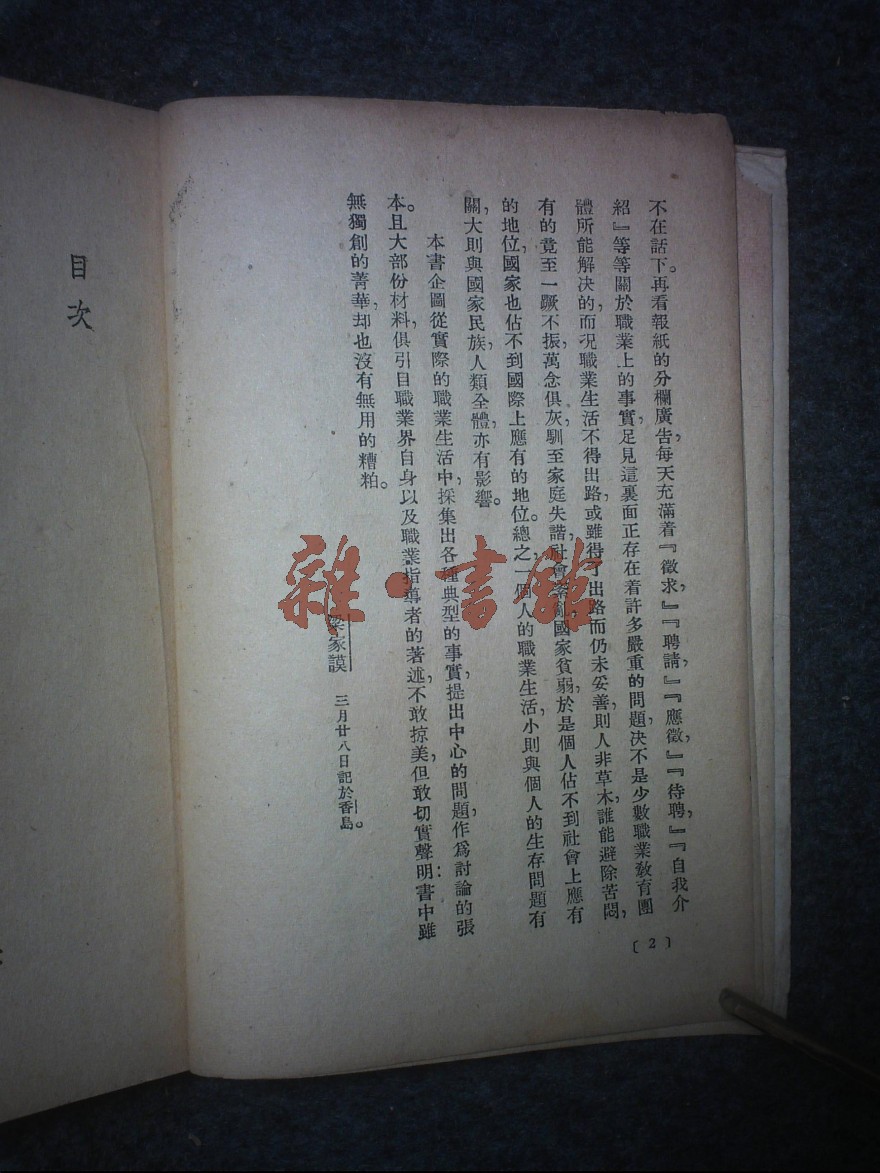 不在話下。再看報紙的分欄廣告，每天充滿着『徵求，』『聘請，』『應徵，』『待聘，』『自我介
紹』等等關於職業上的事實，足見這裏面正存在着許多嚴重的問題，決不是少數職業敎育團
體所能解決的，而況職業生活不得出路，或雖得了出路而仍未妥善，則人非草木，誰能避除苦悶，
有的竟至一蹶不振，萬念俱灰，馴至家庭失諧，社會 國家貧弱，於是個人佔不到社會上應有
的地位，國家也佔不到國際上應有的地位。總之，一個人的職業生活，小則與個人的生存問題有
關，大則與國家民族，人類全體，亦有影響。
本書企圖從實際的職業生活中，採集出各種典型的事實，提出中心的問題，作爲討論的張
本。且大部份材料，俱引目職業界自身以及職業指導者的著述，不敢掠美，但敢切實聲明：書中雖
無獨創的菁華，却也沒有無用的糟粕。
梁家謨 三月廿八日記於香島。
〔2〕
目次
雜·書館